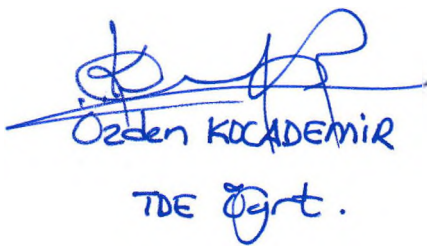 Özden KOCADEMİR
TDE Öğrt.